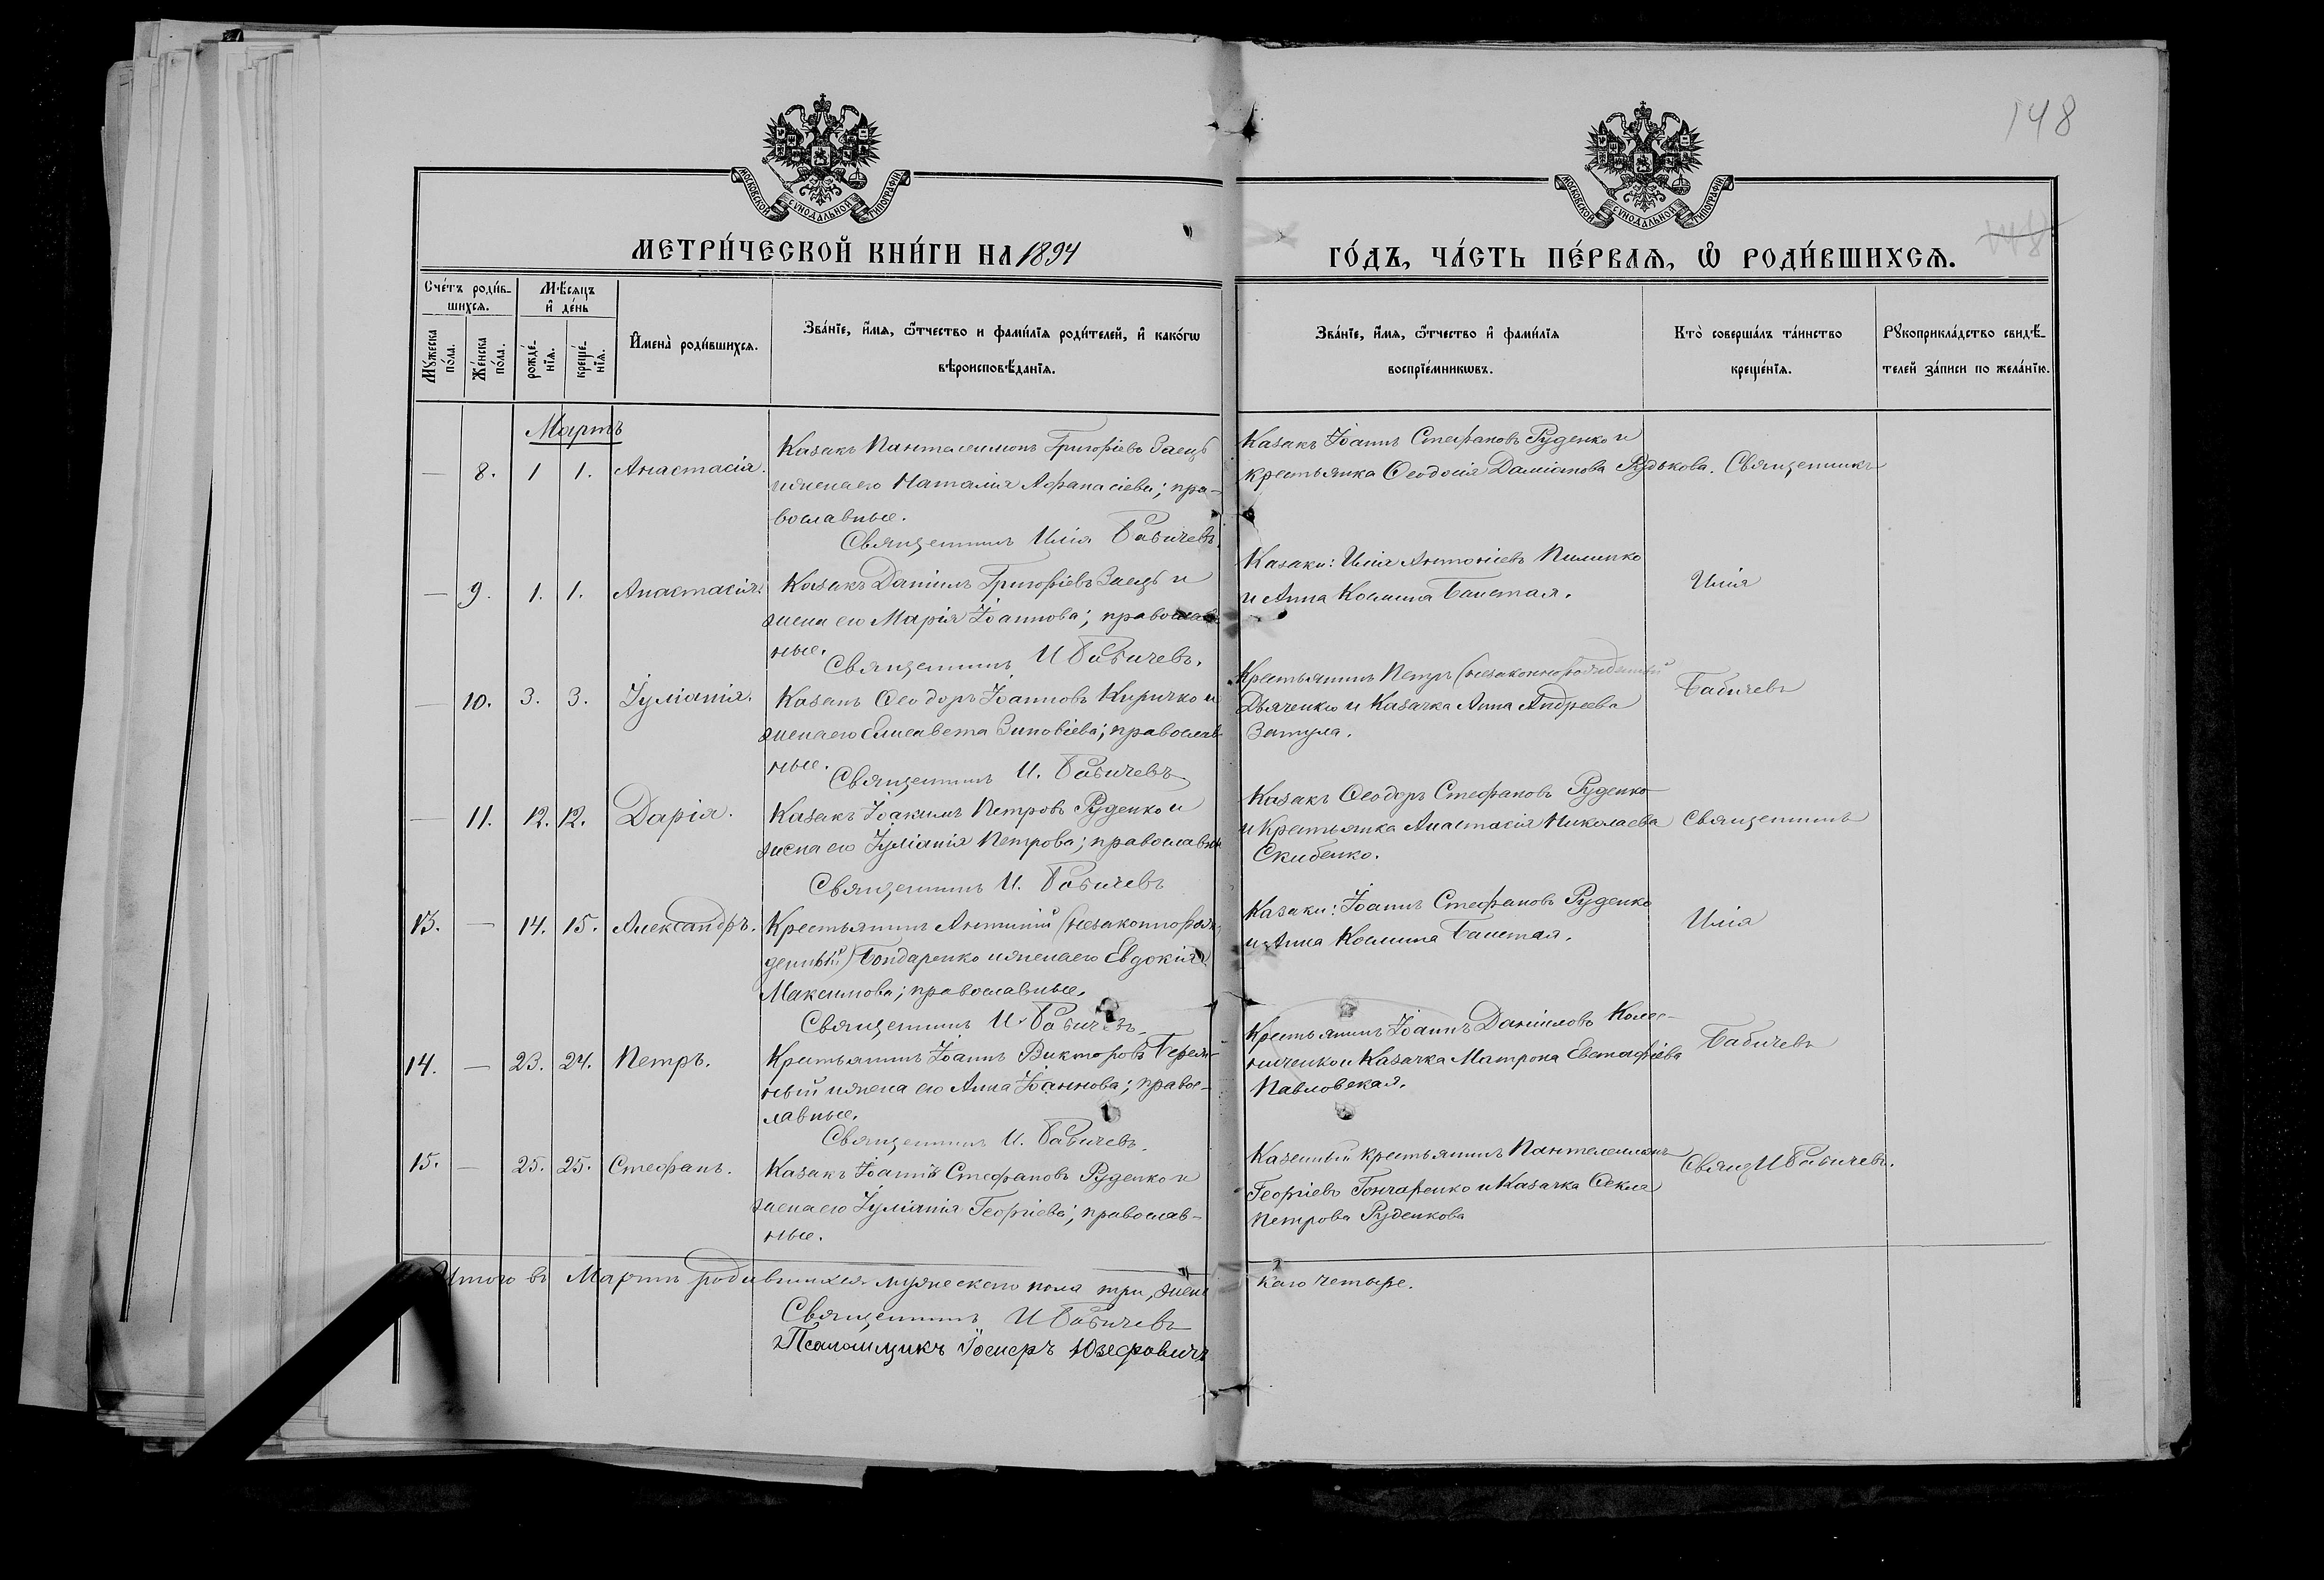 148
МОСКОВСКОЙ СѴНОДАЛЬНОЙ ТИПОГРАФІИ
МОСКОВСКОЙ СѴНОДАЛЬНОЙ ТИПОГРАФІИ
МЕТРИ́ЧЕСКОЙ КНИ́ГИ НА 1894
ГО́ДЪ, ЧА́СТЬ ПЕ́РВАѦ, Ѡ҆ РОДИ́ВШИХСѦ.
Сче́тъ роди́в-
шихсѧ.
Мꙋ́жеска
по́ла.
Же́нска
по́ла.
Мѣ́сѧцъ
и҆ де́нь
рожде́-
нїѧ.
креще́-
нїѧ.
И҆мена̀ роди́вшихсѧ.
Зва́нїе, и҆́мѧ, ѻ҆́тчество и фами́лїѧ роди́телей, и҆ како́гѡ
вѣроисповѣ́данїѧ.
Зва́нїе, и҆́мѧ, ѻ҆́тчество и҆ фами́лїѧ
воспрїе́мникѡвъ.
Кто̀ соверша́лъ та́инство
креще́нїѧ.
Рꙋкоприкла́дство свидѣ́-
телей за́писи по жела́нїю.
Мартъ
— 8. 1 1. Анастасія.
Казакъ Пантелеимонъ Григоріевъ Заецъ
и жена его Наталія Афанасіева; пра-
вославные.
Священникъ Илія Бабичевъ.
Казакъ Іоаннъ Стефановъ Руденко и
крестьянка Ѳеодосія Даміанова Рудькова.
Священникъ
— 9. 1. 1. Анастасія.
Казакъ Даніилъ Григоріевъ Заецъ и
жена его Марія Іоаннова; православ-
ные.
Священникъ И Бабичевъ.
Казаки: Илія Антоніевъ Пилипко
и Анна Космина Баистая.
Илія
— 10. 3. 3. Іуліанія.
Казакъ Ѳеодоръ Іоанновъ Киричко и
жена его Елисавета Зиновіева; православ-
ные.
Священникъ И. Бабичевъ
Крестьянинъ Петръ (незаконнорожденный
Дьяченко и Казачка Анна Андреева
Затула.
Бабичевъ
— 11. 12. 12. Дарія.
Казакъ Іоакимъ Петровъ Руденко и
жена его Іуліанія Петрова; православны
Священникъ И. Бабичевъ
Казакъ Ѳеодоръ Стефановъ Руденко
и Крестьянка Анастасія Николаева
Скибенко.
Священникъ
13. — 14. 15. Александръ.
Крестьянинъ Антипій (незаконнорож-
денный) Бондаренко и жена его Евдокія
Максимова; православные.
Священникъ И. Бабичевъ.
Казаки: Іоаннъ Стефановъ Руденко
и Анна Космина Баистая.
Илія
14. — 23. 24. Петръ.
Крестьянинъ Іоаннъ Викторовъ Береж-
ный и жена его Анна Іоаннова; правос-
лавные.
Священникъ И. Бабичевъ.
Крестьянинъ Іоаннъ Даніиловъ Колес-
ниченко и Казачка Матрона Евстафіева
Павловская.
Бабичевъ
15. — 25. 25. Стефанъ.
Казакъ Іоаннъ Стефановъ Руденко и
жена его Іуліанія Георгіева; православ-
ные.
Казенный крестьянинъ Пантелеимонъ
Георгіевъ Гончаренко и Казачка Ѳекла
Петрова Руденкова
Свящ И Бабичевъ.
Итого въ Мартѣ родившихся мужескаго пола три, женс
каго четыре.
Священникъ И Бабичевъ
Псаломщикъ Іосифъ Юзефовичъ